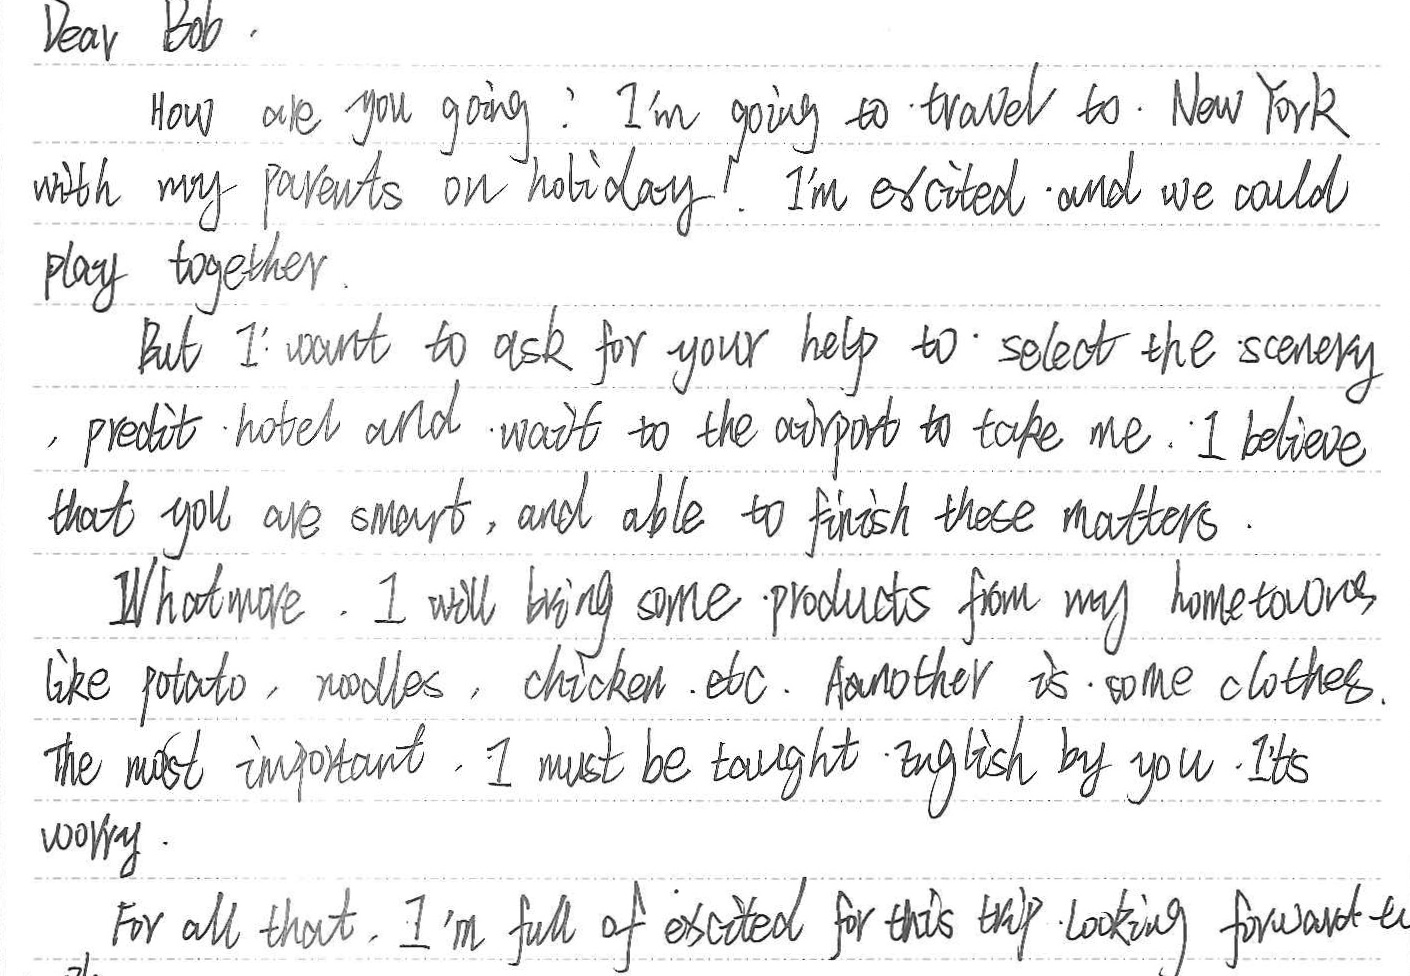 Dear Bob.
How are you going? I'm going to travel to New York
with my parents on holiday! I'm excited and we could
play together.
But I want to ask for your help to select the scenery
, predit hotel and wait to the airport to take me. I believe
that you are smart, and able to finish these matters.
Whatmore. I will bring some products from my hometowns
like potato, noodles, chicken.etc. Aanother is some clothes.
The most important, I must be taught English by you. It's
worry.
For all that, I'm full of excited for this trip. Looking forward